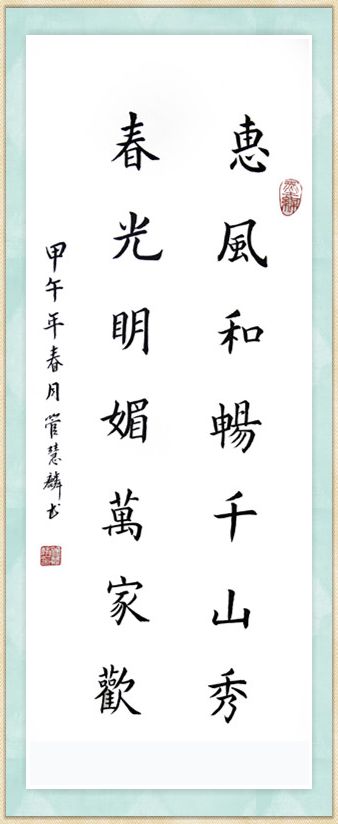 惠風和暢千山秀
春光明媚萬家歡
甲午年春月管慧麟书